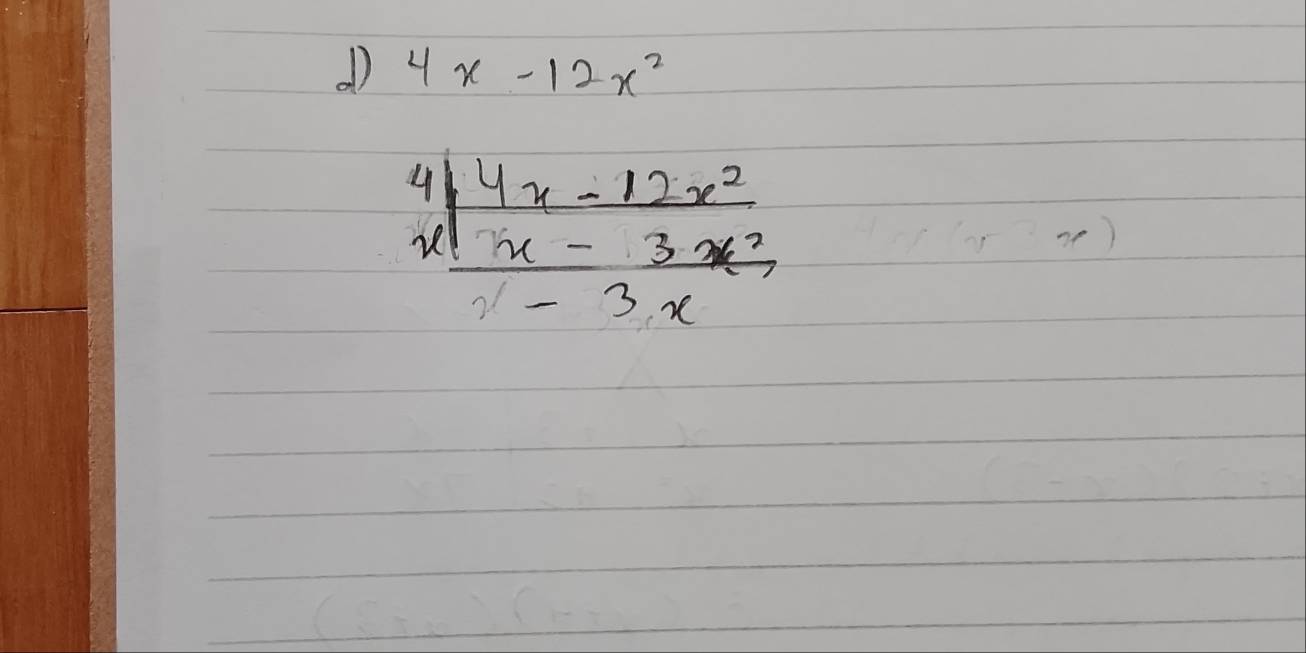 d) 4x - 12x²
4 | 4x - 12x²
x | x - 3x²
x - 3x